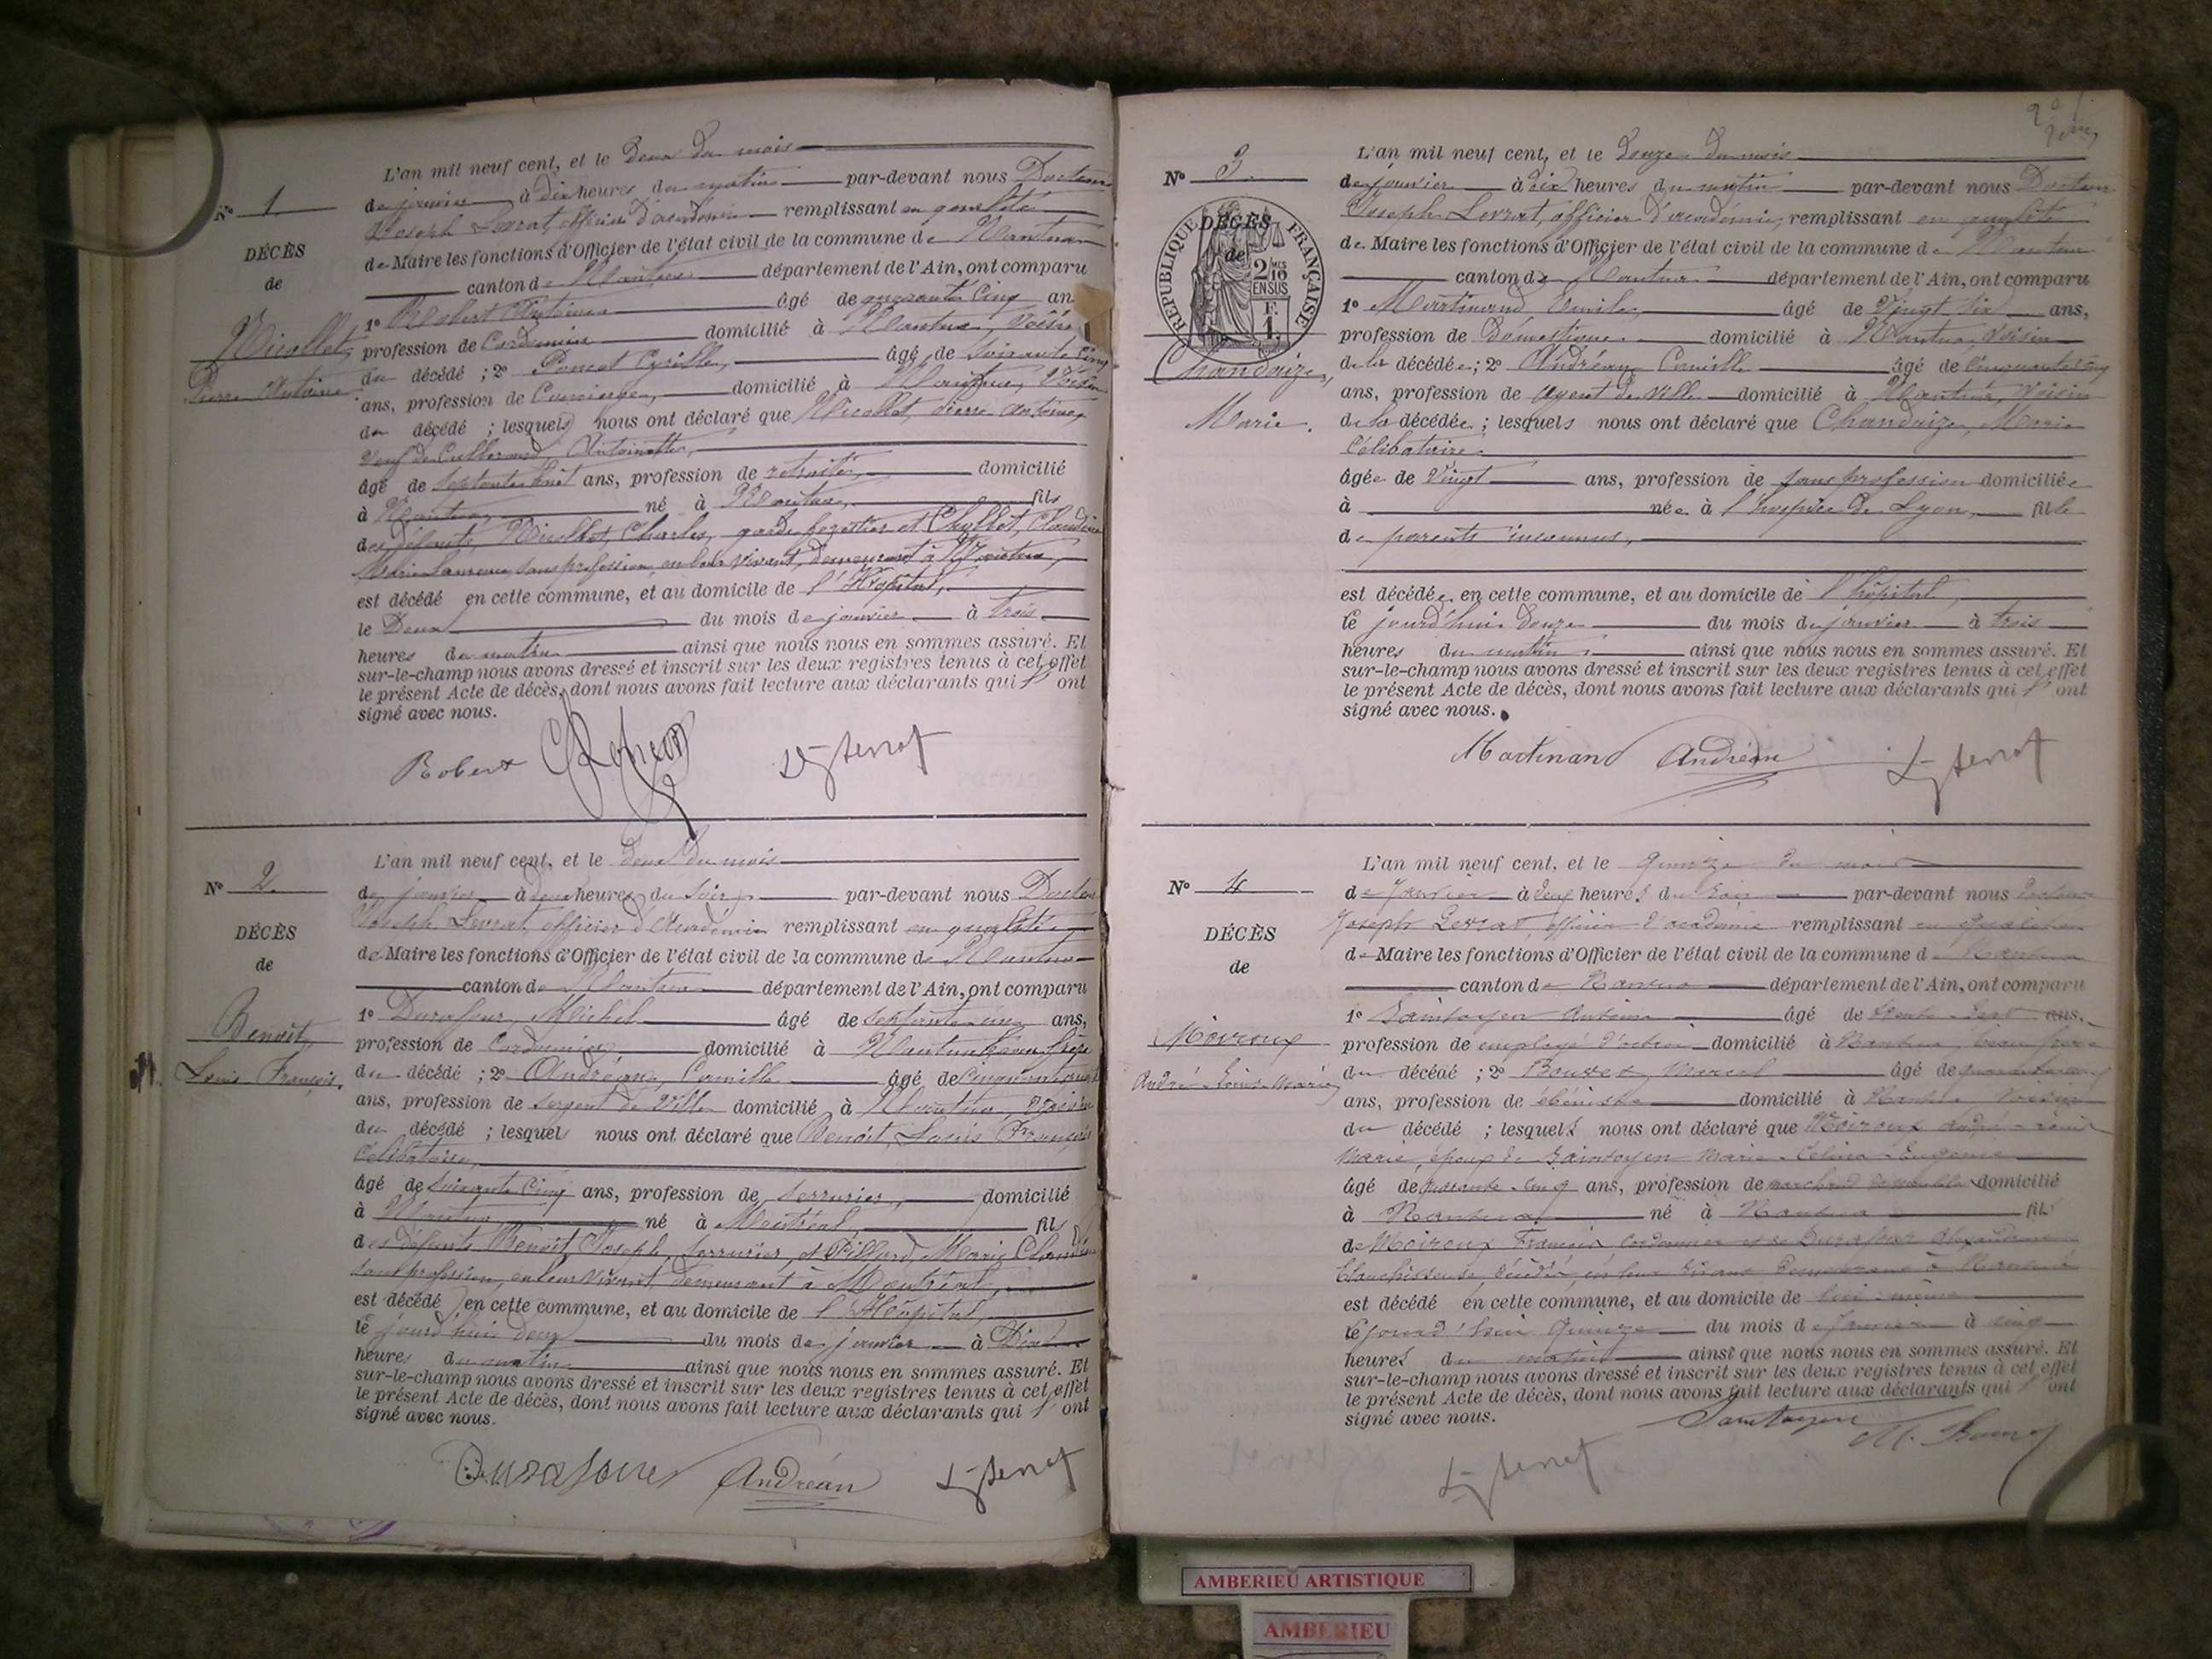 L'an mil neuf cent, et le Deux du mois
N° 1
de janvier à dix heures du matin par-devant nous Docteur
Joseph Levrat, officier d'académie remplissant en qualité
DÉCÈS
de Maire les fonctions d'Officier de l'état civil de la commune de Nantua
de
canton de Nantua département de l'Ain, ont comparu
1° Robert Antoine âgé de quarante cinq an
Nicollet,
profession de Cordonnier domicilié à Nantua, Voisin
Pierre Antoine
du décédé ; 2° Cyrille, âgé de Soixante cinq
ans, profession de Concierge, domicilié à Nantua, Voisin
du décédé ; lesquels nous ont déclaré que Nicollet, Pierre Antoine,
Veuf de Antoinette,
âgé de Septante huit ans, profession de retraité, domicilié
à Nantua, né à Nantua, fils
des défunts, Nicollet, Charles, garde forestier et Claudine
Marie Laurence, sans profession, en leur vivant, demeurant à Nantua,
est décédé en cette commune, et au domicile de l'Hôpital,
le Deux du mois de janvier à trois
heures du matin ainsi que nous nous en sommes assuré. Et
sur-le-champ nous avons dressé et inscrit sur les deux registres tenus à cet effet
le présent Acte de décès, dont nous avons fait lecture aux déclarants qui l' ont
signé avec nous.
Robert
L'an mil neuf cent, et le deux du mois
N° 2
de janvier à deux heures du Soir par-devant nous Docteur
Joseph Levrat, officier d'Académie remplissant en qualité
DÉCÈS
de Maire les fonctions d'Officier de l'état civil de la commune de Nantua
de
canton de Nantua département de l'Ain, ont comparu
1° Durafour, Michel âgé de Septante cinq ans,
Benoît,
profession de Cordonnier domicilié à Nantua beau frère
Louis François.
du décédé ; 2° Andréan, Camille âgé de
ans, profession de Sergent de Ville domicilié à Nantua, Voisin
du décédé ; lesquels nous ont déclaré que Benoît, Louis François
Célibataire,
âgé de Soixante cinq ans, profession de Serrurier, domicilié
à Nantua né à Montréal, fils
des défunts Benoît Joseph, Serrurier, et Pillard, Marie Claudine
sans profession, en leur vivant demeurant à Montréal,
est décédé en cette commune, et au domicile de l'Hôpital,
le jourd'hui deux du mois de janvier à
heures du matin ainsi que nous nous en sommes assuré. Et
sur-le-champ nous avons dressé et inscrit sur les deux registres tenus à cet effet
le présent Acte de décès, dont nous avons fait lecture aux déclarants qui l' ont
signé avec nous.
Durafour Andréan
L'an mil neuf cent, et le Douze du mois
N° 3
de janvier à dix heures du matin par-devant nous Docteur
Joseph Levrat, officier d'académie, remplissant en qualité
DÉCÈS
de Maire les fonctions d'Officier de l'état civil de la commune de Nantua
de
RÉPUBLIQUE FRANÇAISE
2/10 EN SUS
F. 1.
canton de Nantua département de l'Ain, ont comparu
1° Martinand Emile, âgé de Vingt six ans,
profession de Domestique domicilié à Nantua, voisin
Chandaize,
de la décédée ; 2° Andréan, Camille âgé de
ans, profession de Agent de Ville domicilié à Nantua, Voisin
Marie.
de la décédée ; lesquels nous ont déclaré que Chandaize, Marie
Célibataire
âgée de Vingt ans, profession de sans profession domiciliée
à née à l'hospice de Lyon, fille
de parents inconnus,
est décédée en cette commune, et au domicile de l'hôpital,
le jourd'hui Douze du mois de janvier à trois
heures du matin, ainsi que nous nous en sommes assuré. Et
sur-le-champ nous avons dressé et inscrit sur les deux registres tenus à cet effet
le présent Acte de décès, dont nous avons fait lecture aux déclarants qui l' ont
signé avec nous.
Martinand Andréan
L'an mil neuf cent, et le Quinze du mois
N° 4
de Janvier à deux heures du soir par-devant nous Docteur
Joseph Levrat, officier d'académie remplissant en qualité
DÉCÈS
de Maire les fonctions d'Officier de l'état civil de la commune de Nantua
de
canton de Nantua département de l'Ain, ont comparu
1° Saintoyen Antoine âgé de trente sept ans,
Moiroux
profession de employé d'octroi domicilié à Nantua, beau frère
André-Louis-Marie,
du décédé ; 2° Bouvet, Marcel âgé de
ans, profession de ébéniste domicilié à Nantua voisin
du décédé ; lesquels nous ont déclaré que Moiroux André-Louis
Marie, époux de Saintoyen Marie-Célina-Eugénie
âgé de quarante-cinq ans, profession de marchand de meubles domicilié
à Nantua, né à Nantua fils
de Moiroux François cordonnier et de Durafour
blanchisseuse décédés, en leur vivant demeurant à Nantua
est décédé en cette commune, et au domicile de lui-même
le jourd'hui Quinze du mois de janvier à cinq
heures du matin ainsi que nous nous en sommes assuré. Et
sur-le-champ nous avons dressé et inscrit sur les deux registres tenus à cet effet
le présent Acte de décès, dont nous avons fait lecture aux déclarants qui l' ont
signé avec nous.
Saintoyen
AMBERIEU ARTISTIQUE
AMBERIEU